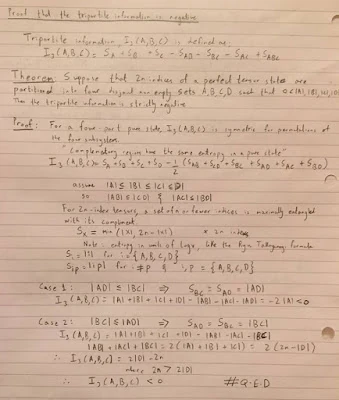 Proof that the tripartite information is negative
Tripartite information, I₃(A,B,C) is defined as:
I₃(A,B,C) = S_A + S_B + S_C - S_AB - S_BC - S_AC + S_ABC
Theorem: Suppose that 2n indices of a perfect tensor state are
partitioned into four disjoint non empty sets A,B,C,D such that 0<|A|,|B|,|C|,|D|
Then the tripartite information is strictly negative
Proof: For a four-part pure state, I₃(A,B,C) is symmetric for permutations of
the four subsystems.
"Complementary regions have the same entropy in a pure state"
I₃(A,B,C) = S_A + S_B + S_C + S_D - 1/2 (S_AB + S_CD + S_BC + S_AD + S_AC + S_BD)
assume |A| ≤ |B| ≤ |C| ≤ |D|
so |AB| ≤ |CD| & |AC| ≤ |BD|
For 2n-index tensors, a set of n or fewer indices is maximally entangled
with its complement.
S_x = min(|X|, 2n-|X|) 2n
Note: entropy in units of log v, like the Ryu Takayanagi formula
S_i = |i| for i = {A,B,C,D}
S_ip = |ip| for i ≠ p & i,p = {A,B,C,D}
Case 1: |AD| ≤ |BC| ⇒ S_BC = S_AD = |AD|
I₃(A,B,C) = |A| + |B| + |C| + |D| - |AB| - |AC| - |AD| = -2|A| < 0
Case 2: |BC| ≤ |AD| ⇒ S_AD = S_BC = |BC|
I₃(A,B,C) = |A| + |B| + |C| + |D| - |AB| - |AC| - |BC|
|AB| + |AC| + |BC| = 2(|A| + |B| + |C|) = 2(2n-|D|)
∴ I₃(A,B,C) = 2|D| - 2n
where 2n > 2|D|
∴ I₃(A,B,C) < 0 #Q.E.D